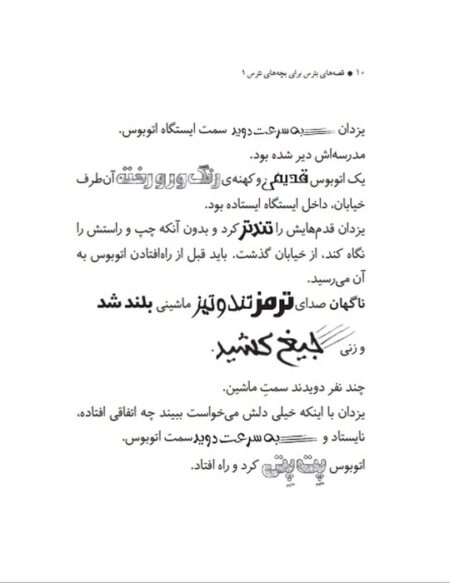 ۱۰ ● قصه‌های بترس برای بچه‌های نترس ۱
یزدان به سرعت دوید سمت ایستگاه اتوبوس.
مدرسه‌اش دیر شده بود.
یک اتوبوس قدیمی و کهنه‌ی رنگ و رو رفته آن‌طرف
خیابان، داخل ایستگاه ایستاده بود.
یزدان قدم‌هایش را تندتر کرد و بدون آنکه چپ و راستش را
نگاه کند، از خیابان گذشت. باید قبل از راه‌افتادن اتوبوس به
آن می‌رسید.
ناگهان صدای ترمز تند و تیز ماشینی بلند شد
و زنی جیغ کشید.
چند نفر دویدند سمتِ ماشین.
یزدان با اینکه خیلی دلش می‌خواست ببیند چه اتفاقی افتاده،
نایستاد و به سرعت دوید سمت اتوبوس.
اتوبوس پِت پِتی کرد و راه افتاد.